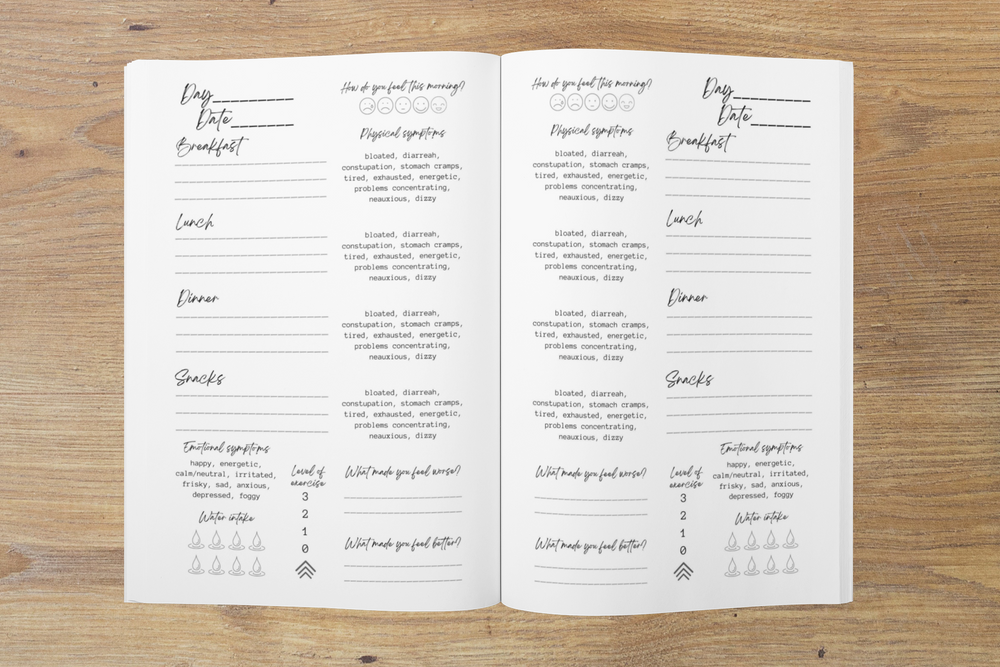 Day_________
Date_______
Breakfast
Lunch
Dinner
Snacks
Emotional symptoms
happy, energetic,
calm/neutral, irritated,
frisky, sad, anxious,
depressed, foggy
Water intake
Level of
exercise
3
2
1
0
How do you feel this morning?
Physical symptoms
bloated, diarreah,
constupation, stomach cramps,
tired, exhausted, energetic,
problems concentrating,
neauxious, dizzy
bloated, diarreah,
constupation, stomach cramps,
tired, exhausted, energetic,
problems concentrating,
neauxious, dizzy
bloated, diarreah,
constupation, stomach cramps,
tired, exhausted, energetic,
problems concentrating,
neauxious, dizzy
bloated, diarreah,
constupation, stomach cramps,
tired, exhausted, energetic,
problems concentrating,
neauxious, dizzy
What made you feel worse?
What made you feel better?
How do you feel this morning?
Physical symptoms
bloated, diarreah,
constupation, stomach cramps,
tired, exhausted, energetic,
problems concentrating,
neauxious, dizzy
bloated, diarreah,
constupation, stomach cramps,
tired, exhausted, energetic,
problems concentrating,
neauxious, dizzy
bloated, diarreah,
constupation, stomach cramps,
tired, exhausted, energetic,
problems concentrating,
neauxious, dizzy
bloated, diarreah,
constupation, stomach cramps,
tired, exhausted, energetic,
problems concentrating,
neauxious, dizzy
What made you feel worse?
What made you feel better?
Day_________
Date_______
Breakfast
Lunch
Dinner
Snacks
Level of
exercise
3
2
1
0
Emotional symptoms
happy, energetic,
calm/neutral, irritated,
frisky, sad, anxious,
depressed, foggy
Water intake